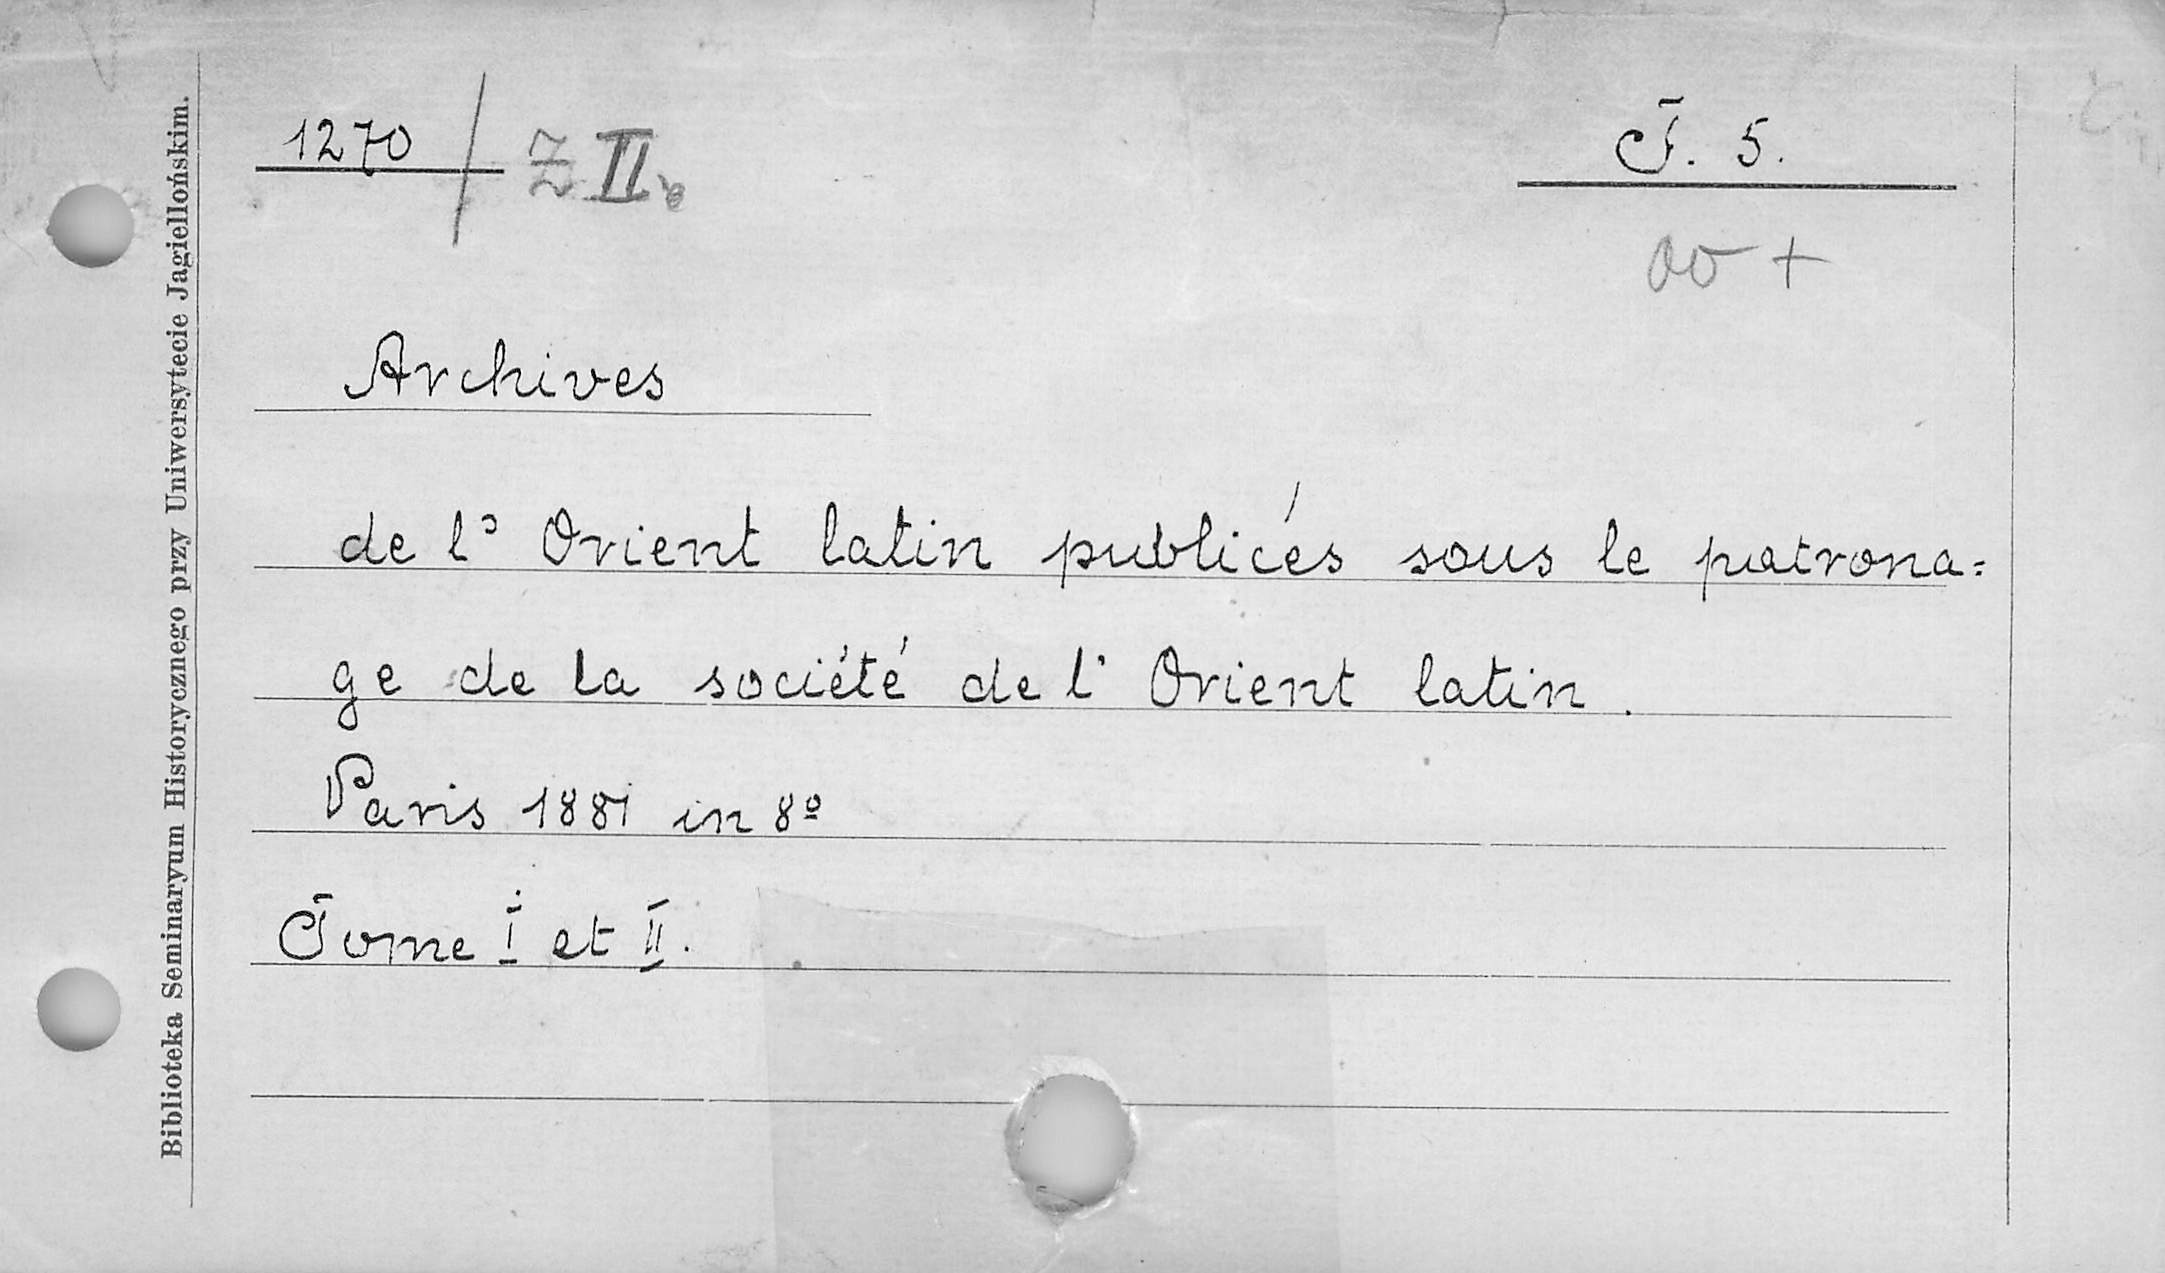 1270 / Z II.
T. 5.
Archives
de l' Orient latin publicés sous le patrona=
ge de la société de l' Orient latin.
Paris 1881 in 8º
Tome I et II.
Biblioteka Seminaryum Historycznego przy Uniwersytecie Jagiellońskim.